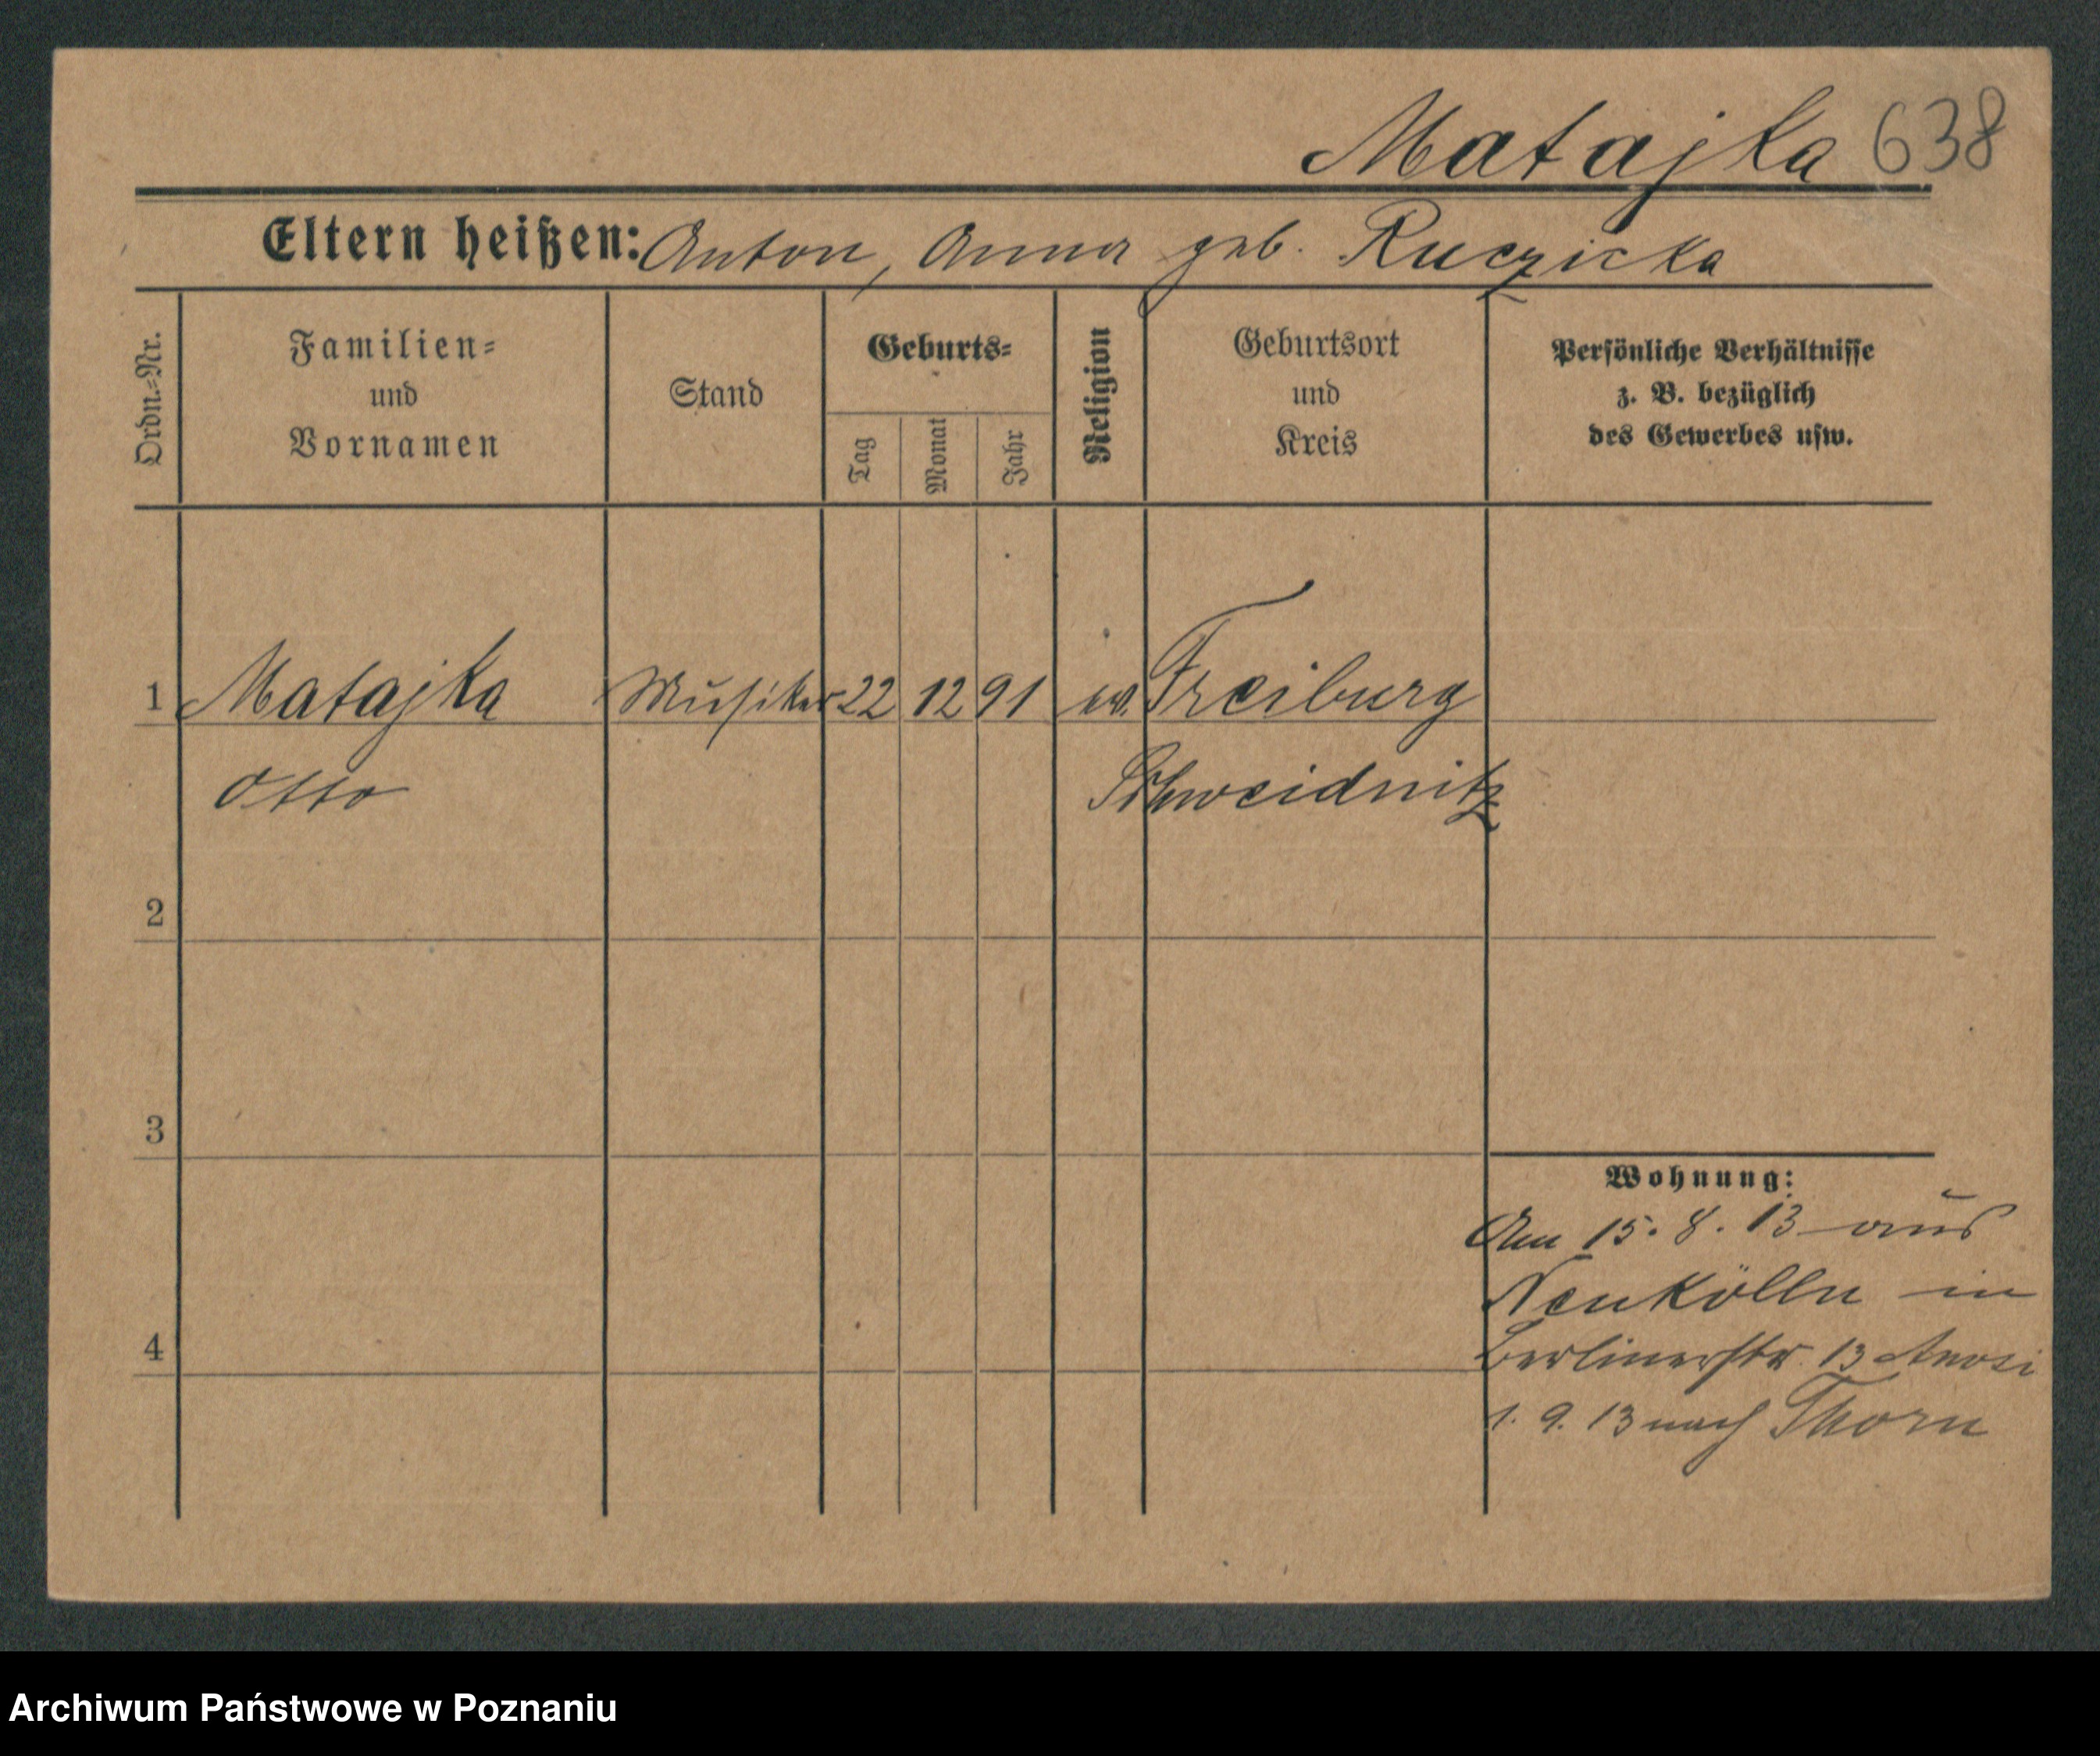 Matajka 638
Eltern heißen: Anton, Anna geb. Ruczicka
Ordn.-Nr.
Familien-
und
Vornamen
Stand
Geburts-
Tag
Monat
Jahr
Religion
Geburtsort
und
Kreis
Persönliche Verhältnisse
z. B. bezüglich
des Gewerbes usw.
1 Matajka Musiker 22 12 91 ev. Freiburg
Otto Schweidnitz
2
3
4
Wohnung:
Am 15. 8. 13 aus
Neukölln in
Berlinerstr. 13
1. 9. 13 nach Thorn
Archiwum Państwowe w Poznaniu